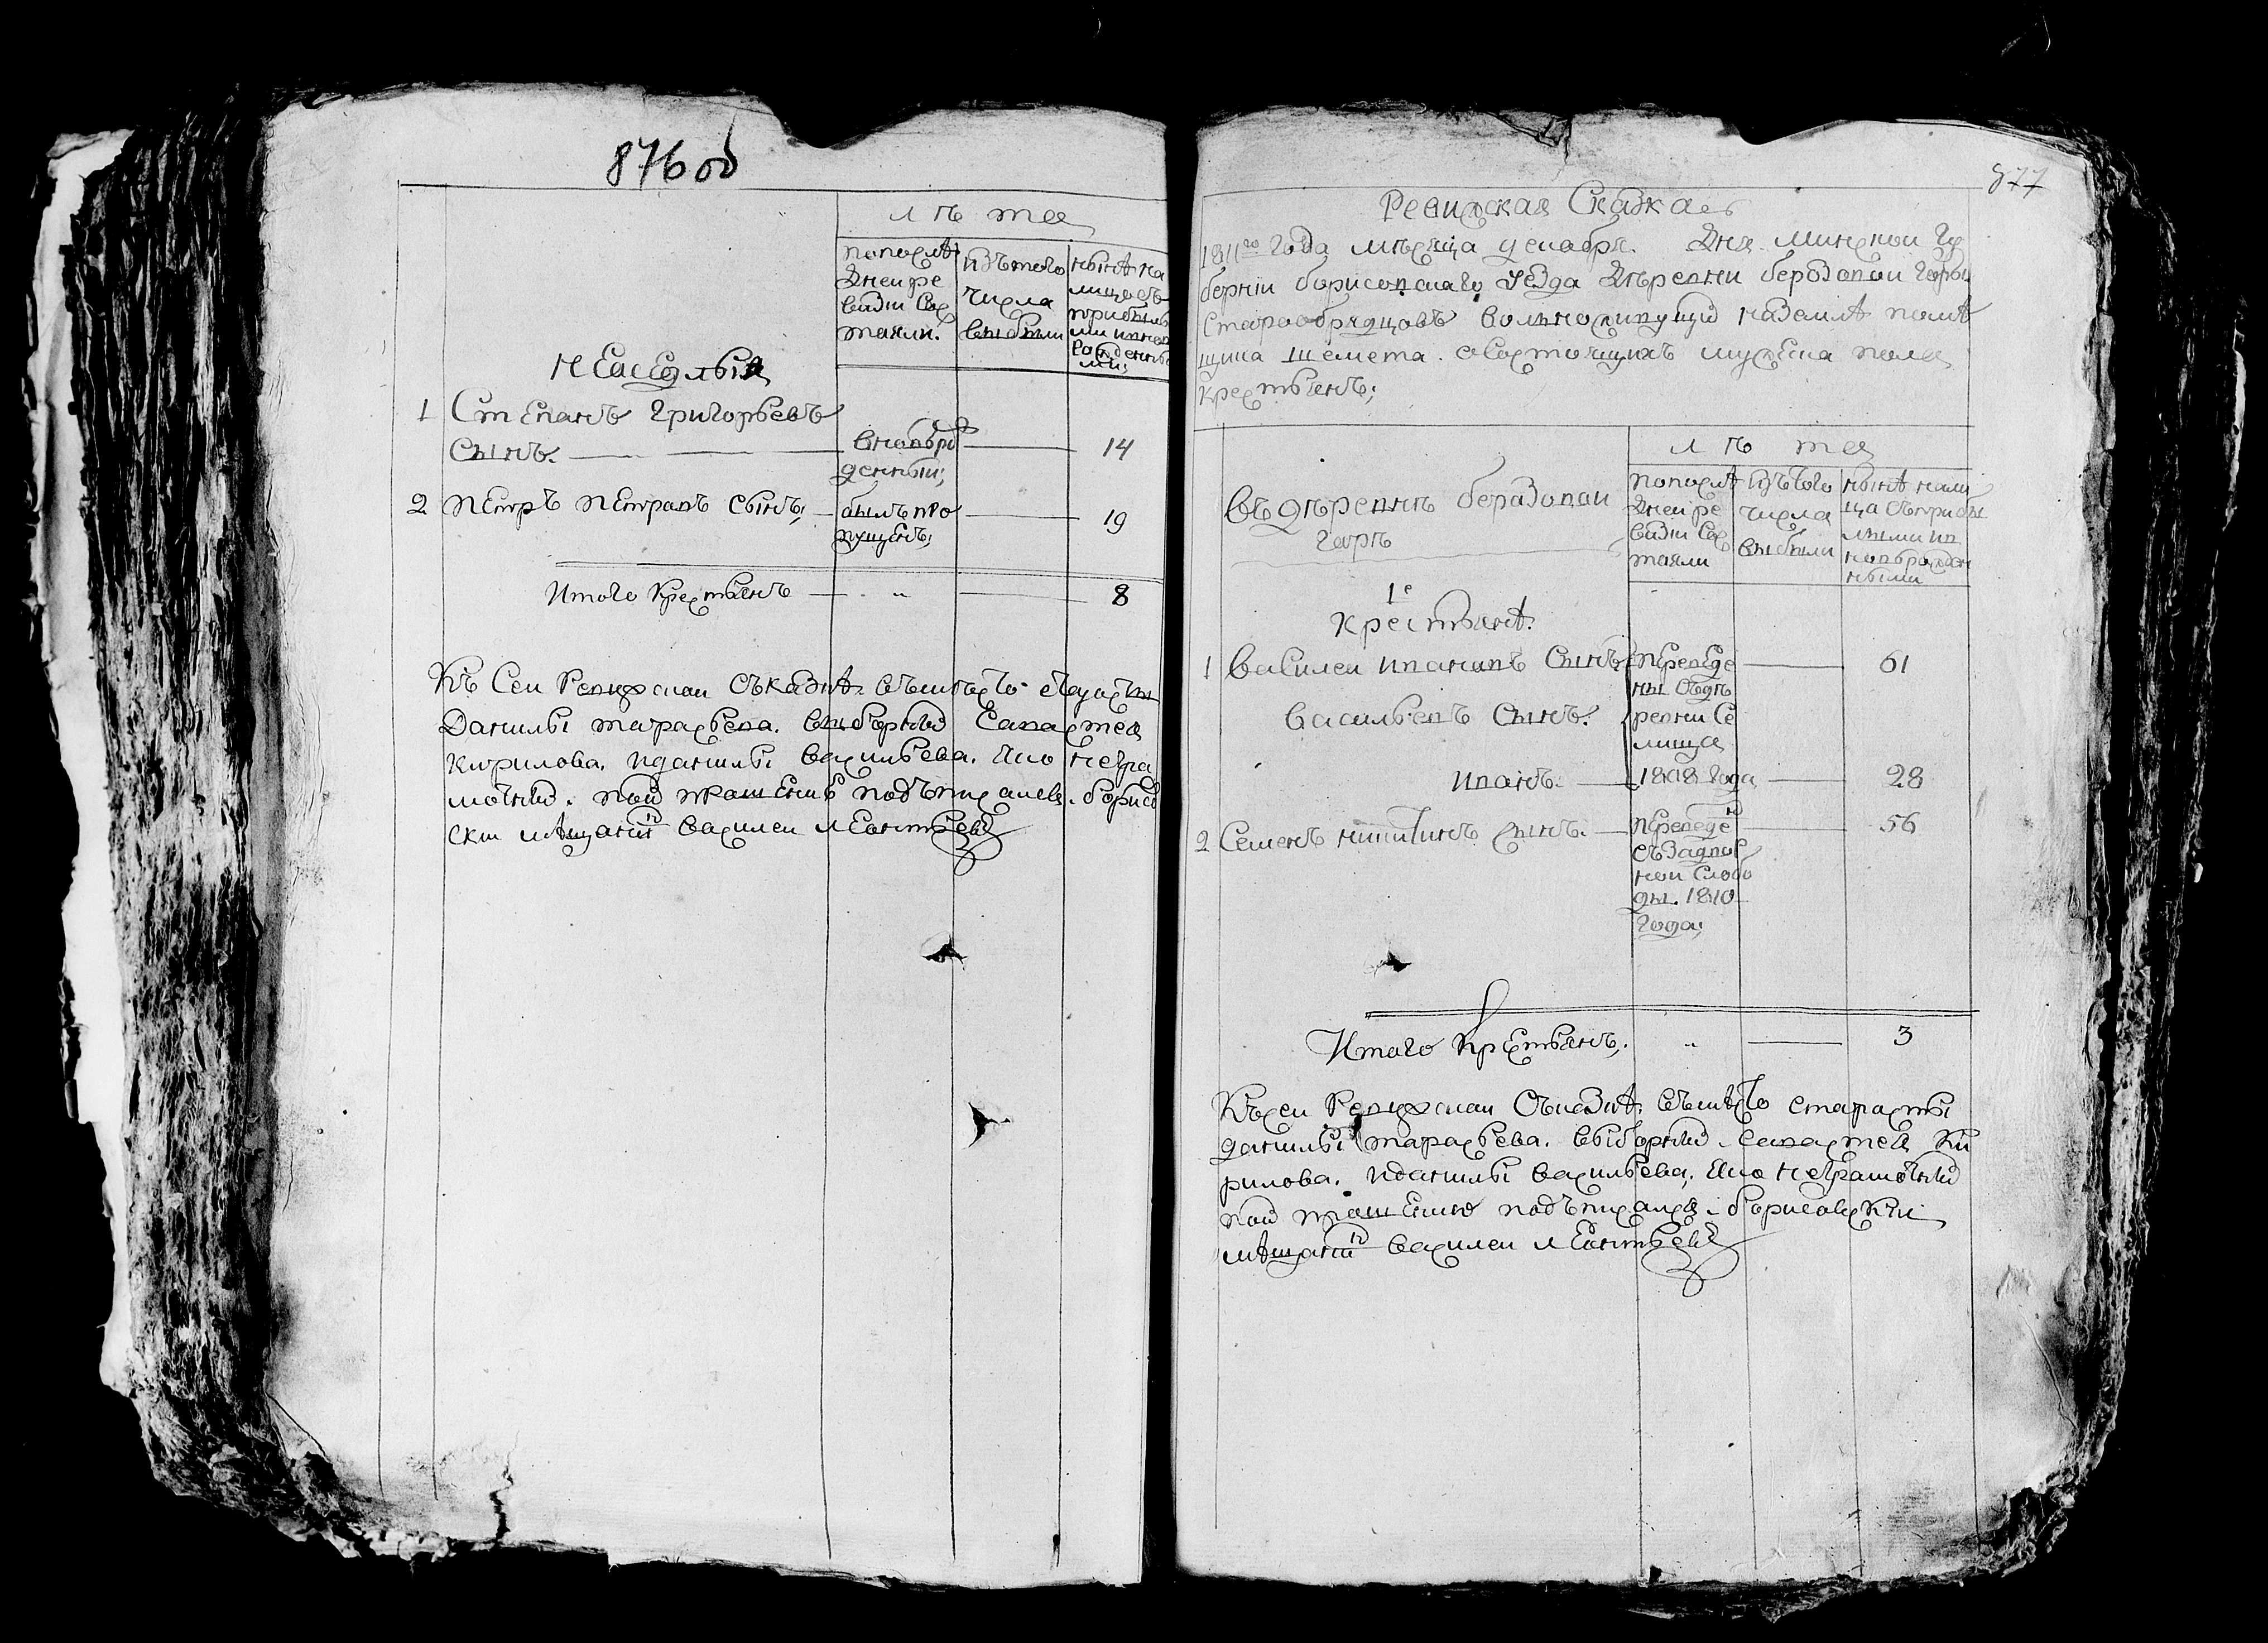 876 об
лѣта
попослѣ
дней ре
визіи Сос
таяли.
изъ того
числа
выбыли
нынѣ на
лицо съ
прибылы
ми и нов
рожденны
ми;
неаседлыя
1 Степанъ Григорьевъ
сынъ. вновьро 14
денный;
2 Петръ Петравъ сынъ, былъ про 19
пущенъ;
Итого Крестьянъ „ 8
Къ Сей Ревизской Съказкѣ. въмѣсто
Данилы тарасьева. выборный Савастея
Кирилова. иданилы васильева. За негра
мотный. прашению подъписался. борисо
ски мѣщанинъ василей леонтьевъ
877
Ревизская Сказка
1811го года месяца декабря. Дня. Минской Гу
берніи борисовскаго уезда Деревни березовой Горы
Старообрядцовъ вольноживущий наземлѣ помѣ
щика шемета. осостоящихъ мужеска пола
крестьянъ;
въ деревнѣ беразовой
Горѣ
лѣта
попослѣ
дней ре
визіи Сос
таяли
изътого
числа
выбыли
нынѣ нали
ца съприбы
лыми и
новорожден
ными
1е
крестьянѣ.
1 Василей ивановъ Сынъ переведе 61
ны съде
Васильевъ Сынъ. ревни Се
лища
иванъ. 1808 года 28
2 Семенъ никитинъ сынъ. переведе 56
съ
ной слобо
ды. 1810
года;
Итаго крестьянъ, „ 3
Къ сей Ревизской Съказкѣ. въмѣсто старасты
данилы тарасьева. выборный Савастея Ки
рилова. иданилы васильева. За неграмотный
прашению подъписался. борисовскіи
мѣщанинъ василей леонтьевъ